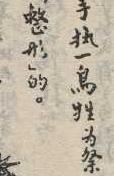 手执一鸟牲为祭
「整形」的。